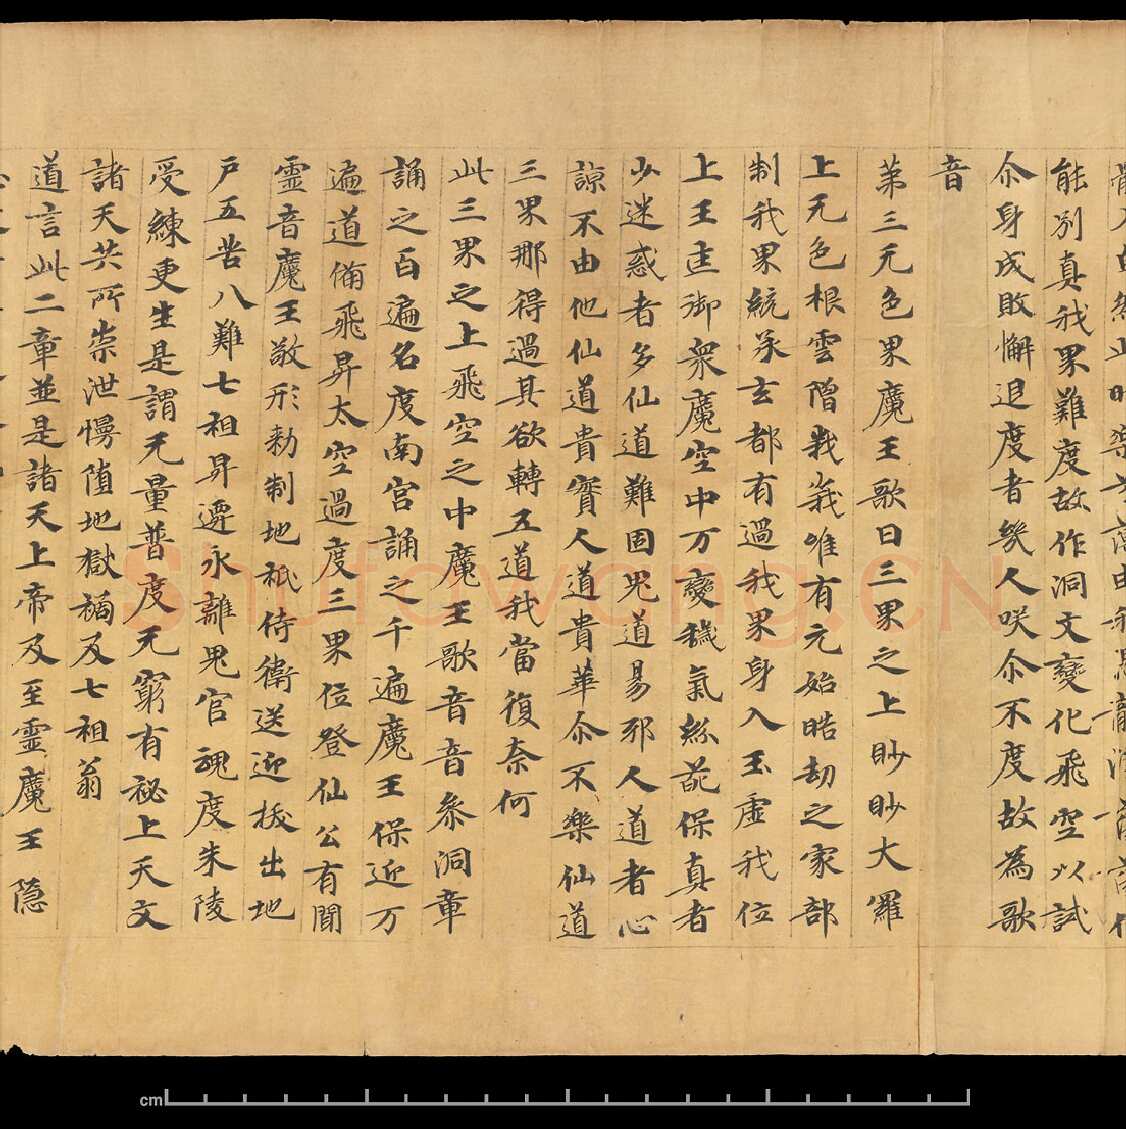 能別真我界難度故作洞文變化飛空以試
尒身成敗懈退度者幾人咲尒不度故為歌
音
苐三无色界魔王歌曰三界之上眇眇大羅
上无色根雲層峩峩唯有元始晧劫之家部
制我界統承玄都有過我界身入玉虛我位
上王匡御衆魔空中万變穢氣紛葩保真者
少迷惑者多仙道難固鬼道易邪人道者心
諒不由他仙道貴實人道貴華尒不樂仙道
三界那得過其欲轉五道我當復奈何
此三界之上飛空之中魔王歌音音參洞章
誦之百遍名度南宮誦之千遍魔王保迎万
遍道俻飛昇太空過度三界位登仙公有聞
靈音魔王敬形勑制地祇侍衛送迎拔出地
戶五苦八難七祖昇遷永離鬼官魂度朱陵
受練更生是謂无量普度无窮有祕上天文
諸天共所崇泄慢墮地獄禍及七祖翁
道言此二章並是諸天上帝及至靈魔王隱
Shufawang.CN
cm